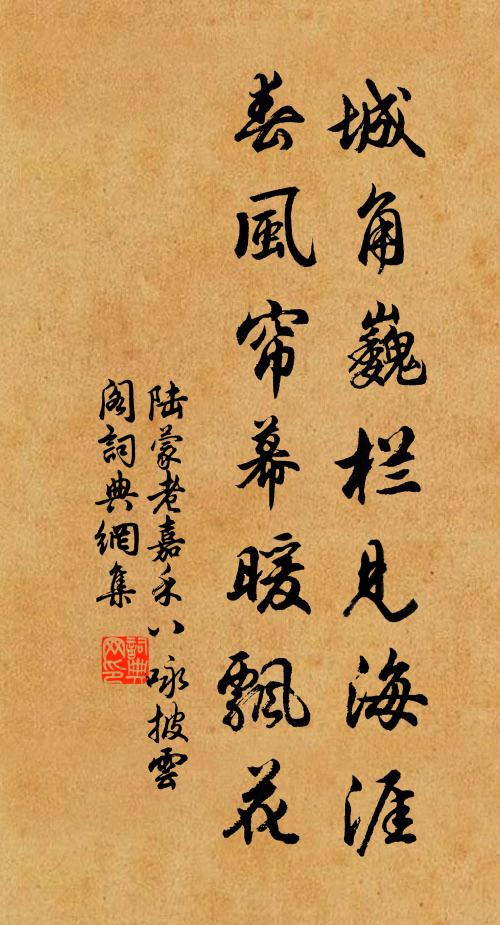 城角巍栏見海涯
春風帘幕暖飄花
陆蒙老嘉禾八咏披雲
阁詞典網集
詞典網印